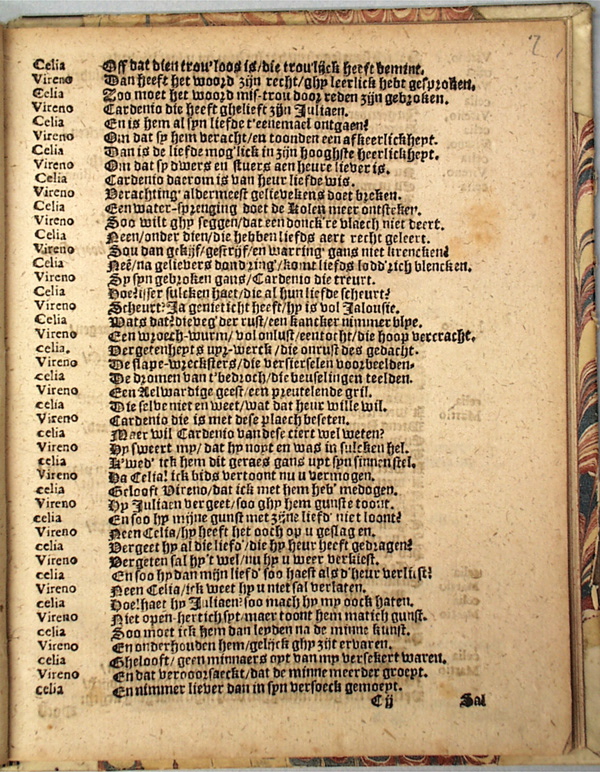 7
Celia Off dat dien trou'loos is/die trou'lijck heeft bemint.
Vireno Dan heeft het woord zijn recht/ghy leerlick hebt gesproken.
Celia Zoo moet het woord mis-trou door reden zijn gebroken.
Vireno Cardenio die heeft ghelieft zijn Juliaen.
Celia En is hem al syn liefde t'eenemael ontgaen?
Vireno Om dat sy hem veracht/en toonden een afkeerlickheyt.
Celia Dan is de liefde mog'lick in zijn hooghste heerlickheyt.
Vireno Om dat sy dwers en stuers aen heure liever is.
Celia Cardenio daerom is van heur liefde wis.
Vireno Verachting' aldermeest gelievekens doet breken.
Celia Een water-sprenging' doet de Kolen meer ontsteken.
Vireno Soo wilt ghy seggen/dat een donck're vlaech niet deert.
Celia Neen/onder dien/die hebben liefds aert recht geleert.
Vireno Sou dan gekijf/gestrijf/en warring' gans niet krencken?
Celia Neē/na gelievers dond'ring'/komt liefds lodd'rich blencken.
Vireno Sy syn gebroken gans/Cardenio die treurt.
Celia Hoe? isser sulcken haet/die al hun liefde scheurt?
Vireno Scheurt? Ja geniet icht heeft/hy is vol Jalousie.
Celia Wats dat? die veg' der rust/een kancker nimmer blye.
Vireno Een wroech-wurm/vol onlust/een tocht/die hoop vercracht.
Celia. Vergetenheyts uyr-werck/die onrust des gedacht.
Vireno De slape-wrecksters/die versierselen voorbeelden.
Celia De dromen van t'bedroch/die beuselingen teelden.
Vireno Een Aelwardige geest/een preutelende gril.
celia Die selve niet en weet/wat dat heur wille wil.
Vireno Cardenio die is met dese plaech beseten.
celia Maer wil Cardenio van dese ciert wel weten?
Vireno Hy sweert my/dat hy noyt en was in sulcken hel.
celia K'wed' ick hem dit geraes gans uyt syn sinnen stel.
Vireno Ha Celia! ick bids vertoont nu u vermogen.
celia Gelooft Vireno/dat ick met hem heb' medogen.
Vireno Hy Juliaen vergeet/soo ghy hem gunste toont.
celia En soo hy mijne gunst met zijne liefd' niet loont?
Vireno Neen Celia/hy heeft het ooch op u geslagen.
celia Vergeet hy al die liefd'/die hy heur heeft gedragen?
Vireno Vergeten sal hy't wel/nu hy u weer verkiest.
celia En soo hy dan mijn liefd' soo haest als d'heur verlist?
Vireno Neen Celia/ick weet hy u niet sal verlaten.
celia Hoe! haet hy Juliaen? soo mach hy my oock haten.
Vireno Niet open-hertich syt/maer toont hem matich gunst.
celia Soo moet ick hem dan leyden na de minne kunst.
Vireno En onderhouden hem/gelijck ghy zijt ervaren.
celia Ghelooft/geen minnaers oyt van my versekert waren.
Vireno En dat veroorsaeckt/dat de minne meerder groeyt.
celia En nimmer liever dan in syn versoeck gemoeyt.
C ij Sal